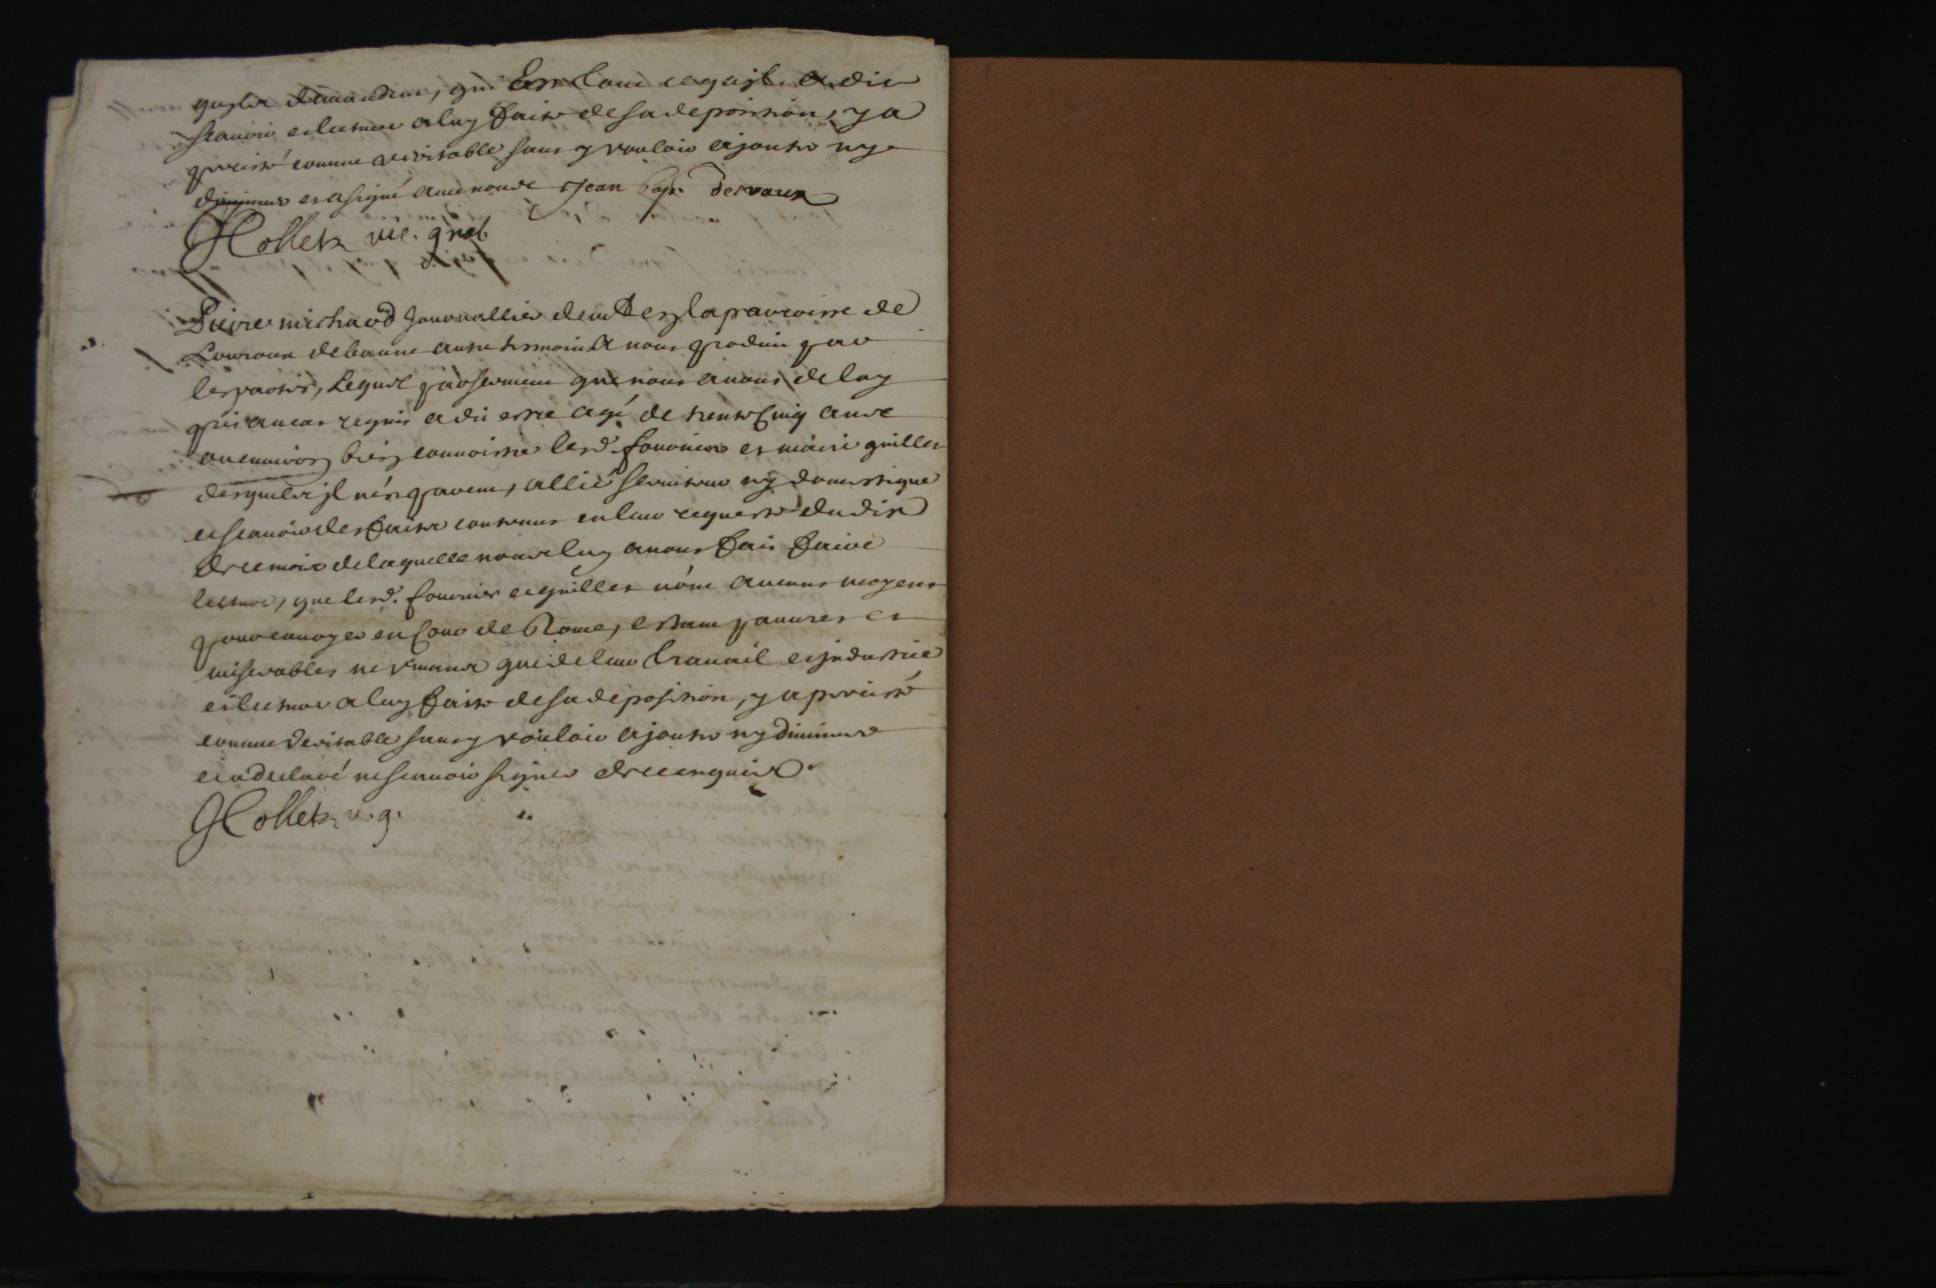 qu'elle demandent, qui Est tout ce qu'jl a dit
scauoir et lecture a luy faitte de sa deposition, y a
persisté comme veritable sans y vouloir ajouter ny
diminuer et a signé auec nous Jean bap. dervaux
GCollet vic. gnal
Pierre michaud Journallier demt en la parroisse de
Louroux debaune autre temoin A nous produit par
les parties, Lequel par serment que nous auons de luy
pris au cas requis a dit estre agé de trente Cinq ans
ou enuiron bien connoistre lesd. fournier et marie quillet
desquels jl n'est parent, allié seruiteur ny domestique
et scauoir des faits contenus en leur requeste du dix
de ce mois de laquelle nous luy auons fait faire
lecture, que lesd. fournier et quillet n'ont aucuns moyens
pour enuoyer en Cour de Rome, estant pauures et
miserables ne viuant que de leur trauail et jndustrie
et lecture a luy faitte de sa deposition, y a persisté
comme veritable sans y vouloir ajouter ny diminuer
et a declaré ne scauoir signer de ce enquis
GCollet v. g.